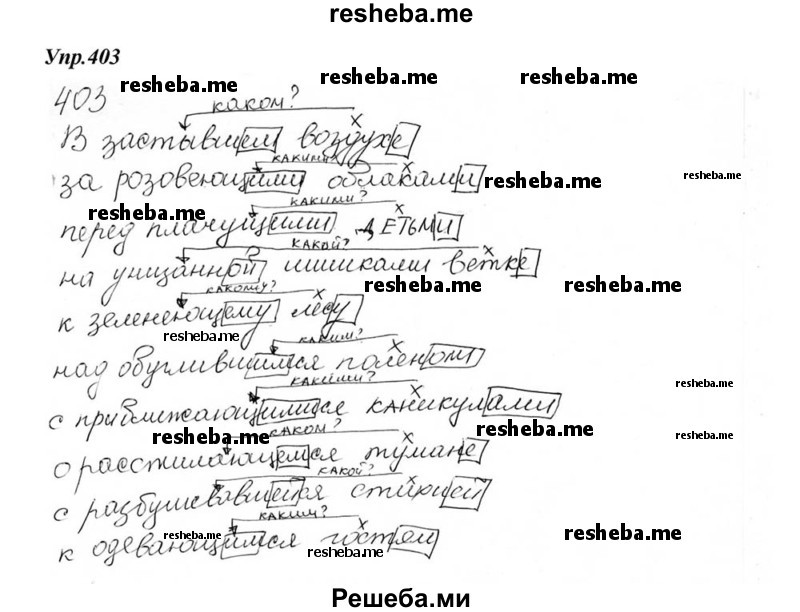 resheba.me
Упр.403
resheba.me resheba.me resheba.me
403 каком?
В застывшем воздухе
какими?
за розовеющими облаками resheba.me resheba.me
resheba.me какими?
перед плачущими детьми
какой?
на унизанной шишками ветке
какому? resheba.me resheba.me
к зеленеющему лесу
resheba.me каким?
над обуглившимся поленом
какими? resheba.me
с приближающимися каникулами
resheba.me каком? resheba.me resheba.me
о расстилающемся тумане
какой?
с разбушевавшейся стихией
каким?
resheba.me resheba.me
к одевающимся гостям
resheba.me
Решеба.ми